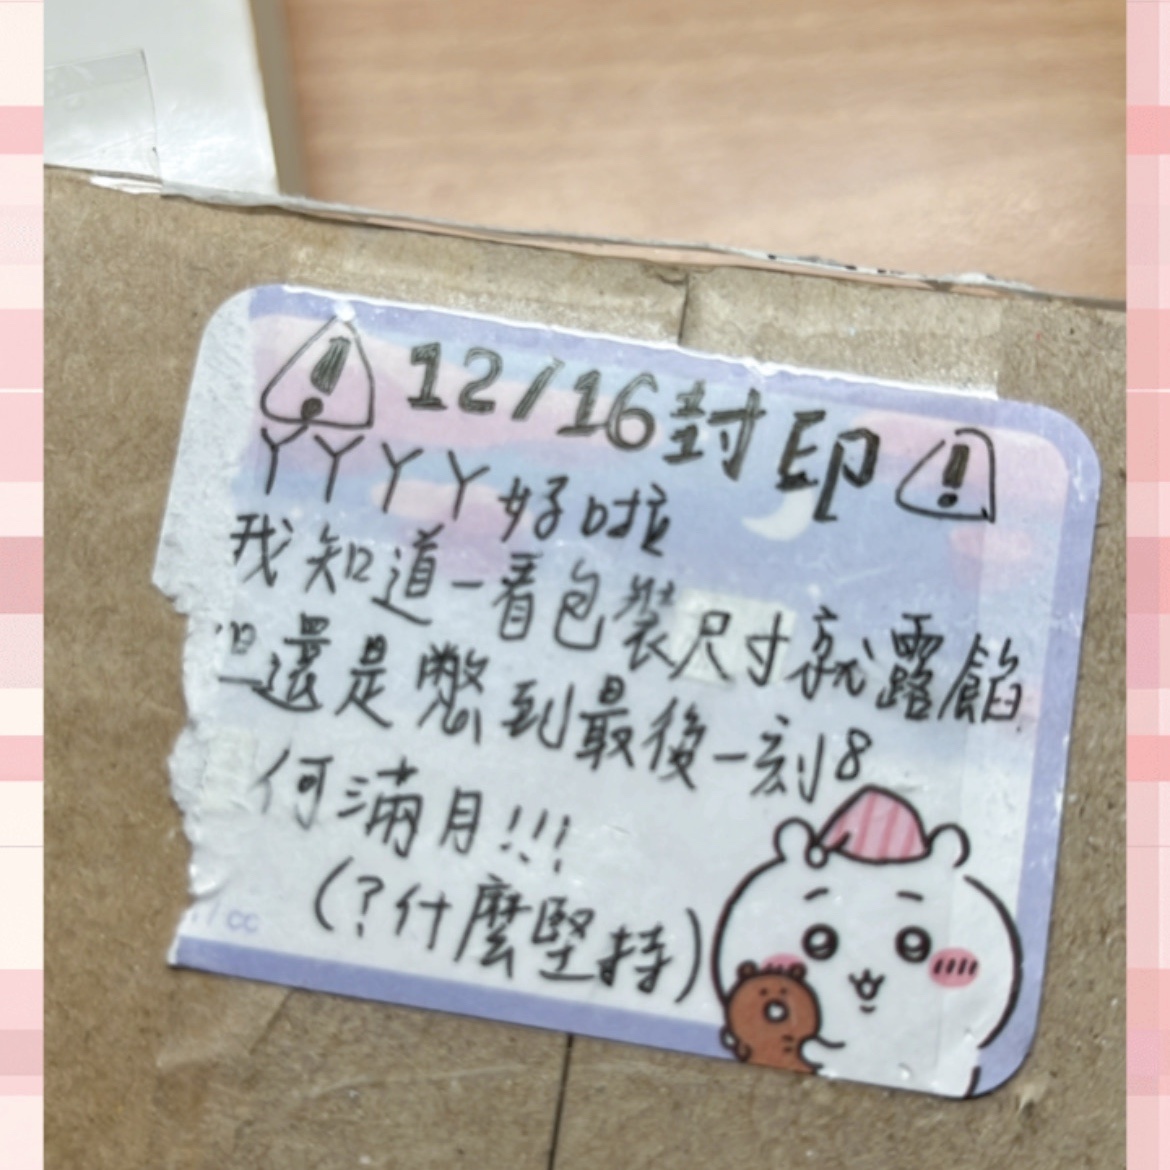 12/16封印
ㄚㄚㄚㄚ好啦
我知道一看包裝尺寸就露餡
但還是憋到最後一刻8
何滿月!!!
(?什麼堅持)